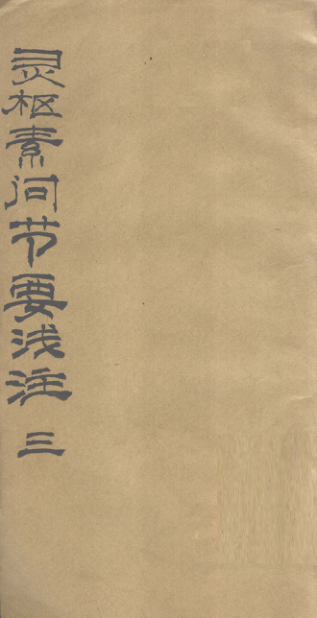 灵枢素问节要浅注 三